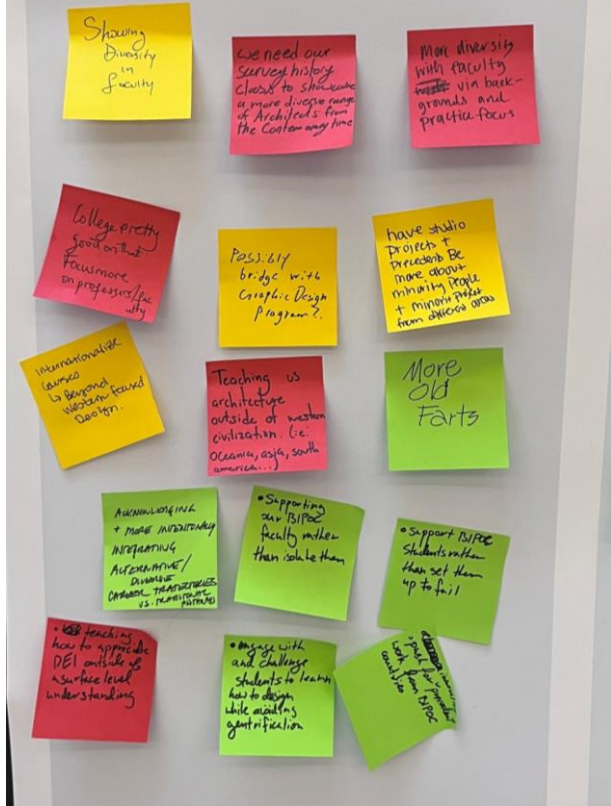 Showing
Diversity
in
faculty
we need our
survey history
class to showcase
a more diverse range
of Architects from
the Contemporary time
More diversity
with faculty
via back-
grounds and
practice focus
College pretty
good on that.
Focus more
on professors/fac
ulty
Possibly
bridge with
Graphic Design
Program?
have studio
projects +
precedents Be
more about
minority People
+ minority
from different areas
Internationalize
courses
↳ Beyond
Western focused
Design.
Teaching us
architecture
outside of western
civilization. (ie:
oceania, asia, south
america...)
More
Old
Farts
ACKNOWLEDGING
+ MORE INTENTIONALLY
INTEGRATING
ALTERNATIVE/
DIVERSE
CAREER TRAJECTORIES
VS. TRADITIONAL
• Supporting
our BIPOC
faculty rather
than isolate them
• Support BIPOC
Students rather
than set them
up to fail
• teaching
how to appreciate
DEI outside of
a surface level
understanding
• engage with
and challenge
students to learn
how to design
while avoiding
gentrification
push for
work from BIPOC
countries